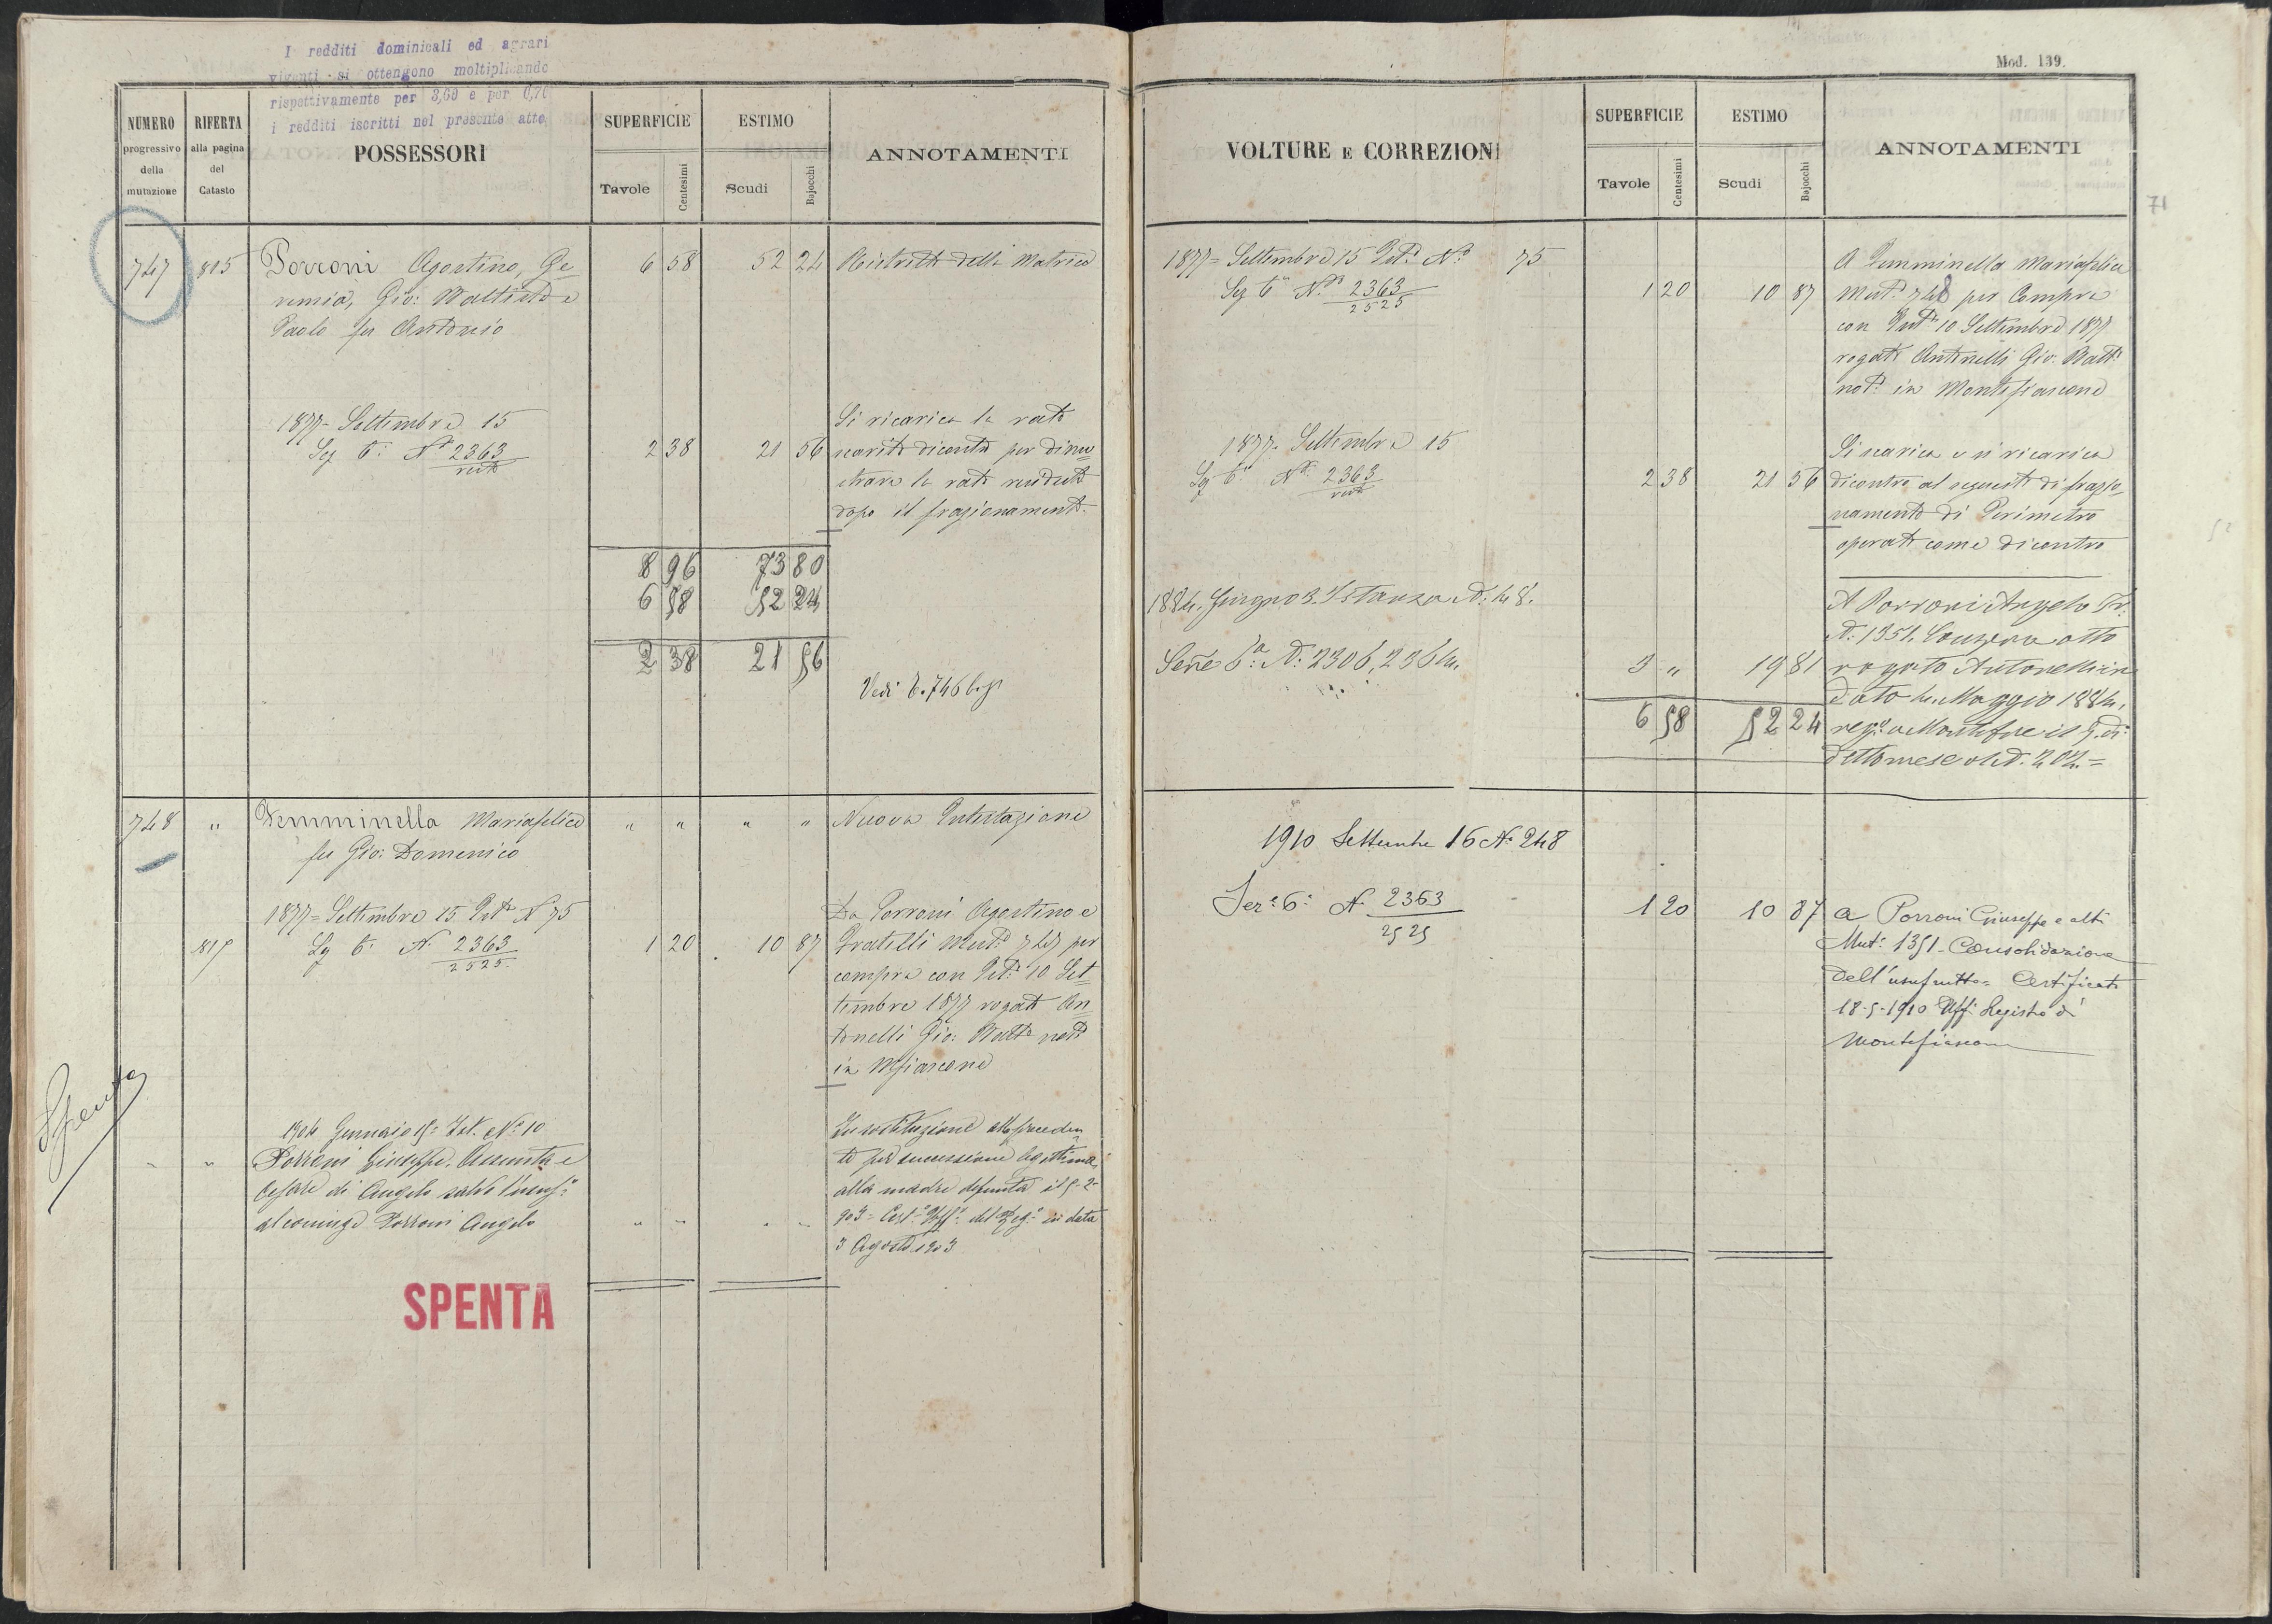 I redditi dominicali ed agrari
vigenti si ottengono moltiplicando
rispettivamente per 3,60 e per 0,70
i redditi iscritti nel presente atto
NUMERO progressivo della mutazione
RIFERTA alla pagina del Catasto
POSSESSORI
SUPERFICIE
Tavole Centesimi
ESTIMO
Scudi Bajocchi
ANNOTAMENTI
747 815 Porroni Agostino, Ge 6 58 52 24 Ristretto della Matrice
remia, Gio: Battista e
Paolo fu Antonio
1877 = Settembre 15
Sez 6ª N° 2363 2 38 21 56
resto
Si ricarica la rata
scarita dicontro per dimo
strare la rata residuata
dopo il frazionamento
8 96 73 80
6 58 52 24
2 38 21 56
Vedi
748 " Femminella Mariafelice " " " " Nuova Intestazione
fu Gio: Domenico
1877 = Settembre 15 Ist N 75
817 Sez 6ª N. 2363 1 20 10 87
2525
Da Porroni Agostino e
Fratelli Mut° 747 per
compra con Ist° 10 Set
tembre 1877 rogato An
tonelli Gio: Batta not°
in Mfiascone
Spenta
1904 Gennaio Ist. N° 10
Porroni Giuseppe, Assunta e
Cesare di Angelo salvo l'usuf°
al coniuge Porroni Angelo " " " "
In sostituzione alla preceden
te per successione legittima
alla madre defunta il 5-2-
903 = Cert° Uff° del Reg° in data
3 Agosto 1903
SPENTA
Mod. 139.
VOLTURE E CORREZIONI
SUPERFICIE
Tavole Centesimi
ESTIMO
Scudi Bajocchi
ANNOTAMENTI
71
1877 = Settembre 15 Ist° N° 75
Sez 6ª N.° 2363 1 20 10 87
2525
A Femminella Mariafelice
Mut° 748 per Compra
con Ist° 10 Settembre 1877
rogato Antonelli Gio: Batt°
not° in Montefiascone
1877. Settembre 15
Sez 6ª N° 2363 2 38 21 56
resto
Si scarica e si ricarica
dicontro al seguito di frazio
namento di Perimetro
operato come dicontro
1884. Giugno 3. Istanza N: 48.
Serie 6ª: N: 2306, 2364. 3 " 19 81
A Porroni Angelo
N: 1351. atto
rogato Antonelli in
Dato 4. Maggio 1884,
detto mese al N. 202. =
6 58 52 24
1910 Settembre 16 N° 248
Sez: 6ª N° 2363 1 20 10 87
2525
a Porroni Giuseppe e altri
Mut: 1351 - Consolidazione
dell'usufrutto = Certificato
18-5-1910 Uff. Registro di
Montefiascone